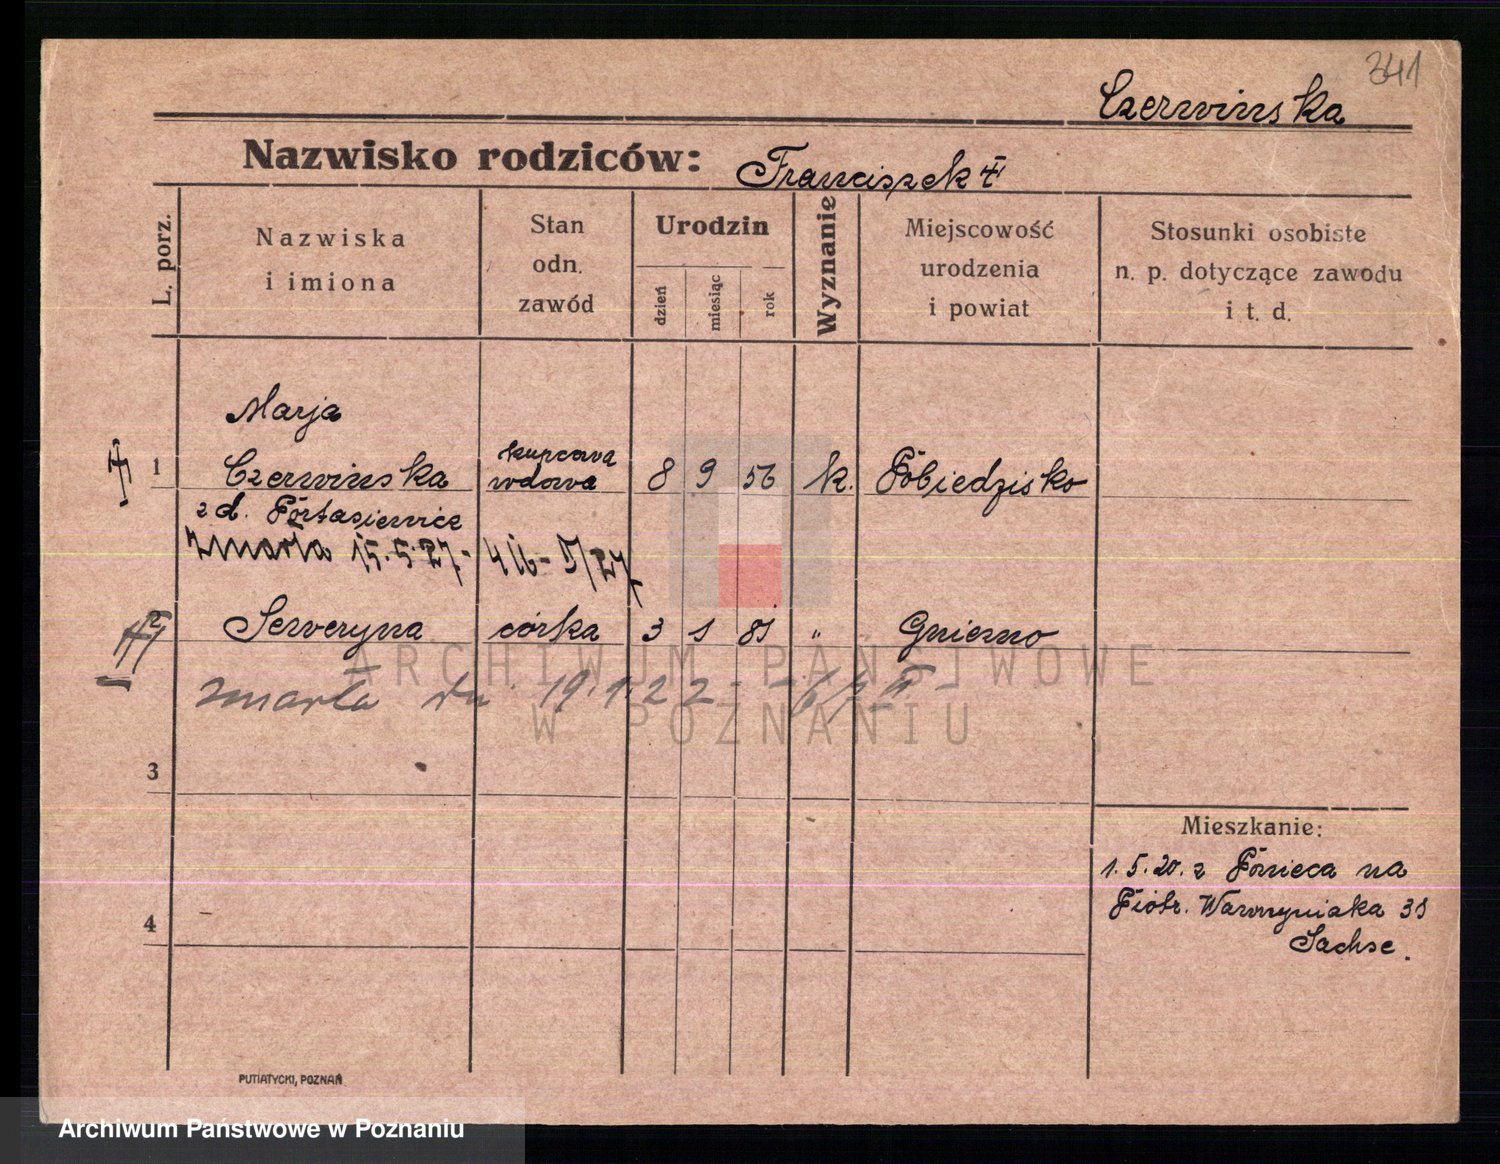 341
Czerwińska
Nazwisko rodziców: Franciszek †
L. porz.
Nazwiska
i imiona
Stan
odn.
zawód
Urodzin
dzień
miesiąc
rok
Wyznanie
Miejscowość
urodzenia
i powiat
Stosunki osobiste
n. p. dotyczące zawodu
i t. d.
Marja
1 Czerwińska kupcowa wdowa 8 9 56 k. Pobiedzisko
z d. Portasiewicz
zmarła 15.5.27.-
2 Seweryna córka 3 1 81 „ Gniezno
zmarła dn 19.1.22
3
4
Mieszkanie:
1.5.20. z Ponieca na
Piotr. Wawrzyniaka 31
Sachse.
PUTIATYCKI, POZNAŃ
ARCHIWUM PAŃSTWOWE
W POZNANIU
Archiwum Państwowe w Poznaniu